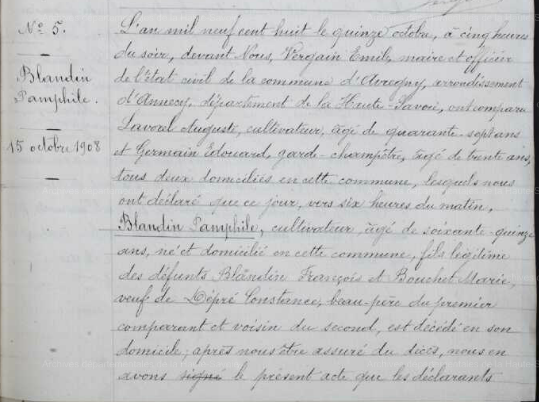 N° 5.
Blandin
Pamphile.
15 octobre 1908
L'an mil neuf cent huit le quinze octobre, à cinq heures
du soir, devant Nous, Vergain Emile, maire et officier
de l'état civil de la commune d'Avregny, arrondissement
d'Annecy, département de la Haute-Savoie, ont comparu
Lavorel Auguste, cultivateur, âgé de quarante-sept ans
et Germain Edouard, garde-champêtre, âgé de trente ans,
tous deux domiciliés en cette commune, lesquels nous
ont déclaré que ce jour, vers six heures du matin,
Blandin Pamphile, cultivateur, âgé de soixante-quinze
ans, né et domicilié en cette commune, fils légitime
des défunts Blandin François et Bouchet Marie,
veuf de Dépré Constance, beau-père du premier
comparant et voisin du second, est décédé en son
domicile; après nous être assuré du décès, nous en
avons signé le présent acte que les déclarants